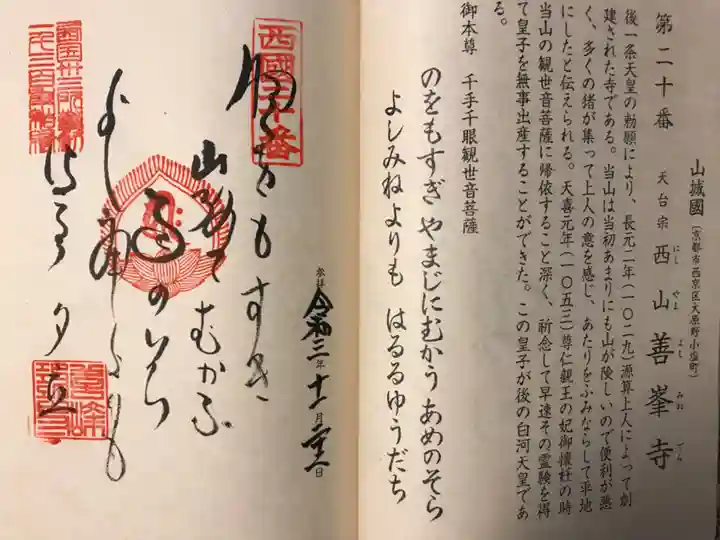 第二十番
山城國（京都市西京区大原野小塩町）
天台宗 西山善峯寺
にし やま よし みね でら
後一条天皇の勅願により、長元二年（一〇二九）源算上人によって創
建された寺である。当山は当初あまりにも山が険しいので便利が悪
く、多くの猪が集って上人の意を感じ、あたりをふみならして平地
にしたと伝えられる。天喜元年（一〇五三）尊仁親王の妃御懐妊の時
当山の観世音菩薩に帰依すること深く、祈念して早速その霊験を得
て皇子を無事出産することができた。この皇子が後の白河天皇であ
る。
御本尊 千手千眼観世音菩薩
のをもすぎ やまじにむかう あめのそら
よしみねよりも はるるゆうだち
参拝 令和三年十一月二十一日
西國二十番
野をもすぎ
山路にむかふ
雨のそら
よしみねよりも
はるる夕立